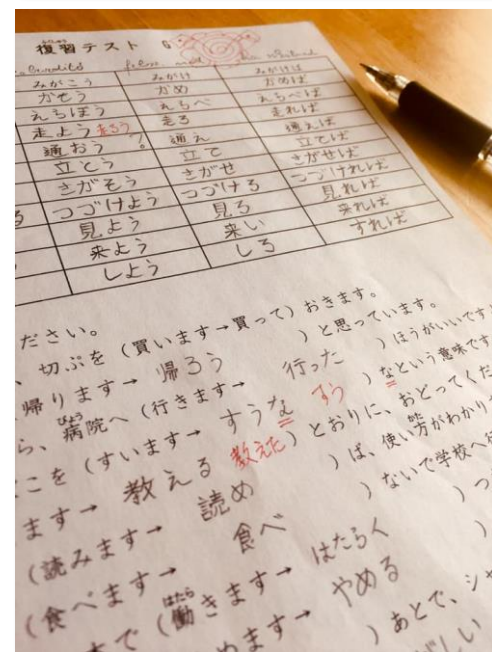 復習テスト 6
みがこう みがけ みがけば
かもう かめ かめば
えらぼう えらべ えらべば
走よう 走ろう 走る 走れば
通おう ? 通え 通えば
立とう 立て 立てば
さがそう さがせ さがせば
ろ つづけよう つづけろ つづければ
見よう 見ろ 見れば
来よう 来い 来れば
しよう しろ すれば
ださい。
、切ぷを(買います→買って)おきます。
帰ります→ 帰ろう )と思っています。
ら、病院へ(行きます→ 行った )ほうがいいです
びょう
こを(すいます→ すうな すう )なという意味です
ます→ 教える 教えた )とおりに、おどってくだ
(読みます→ 読め )ば、使い方がわかり
かた
(食べます→ 食べ )ないで学校へ行
まで(働きます→ はたらく )つ
はたら
めます→ やめる )
)あとで、シャ